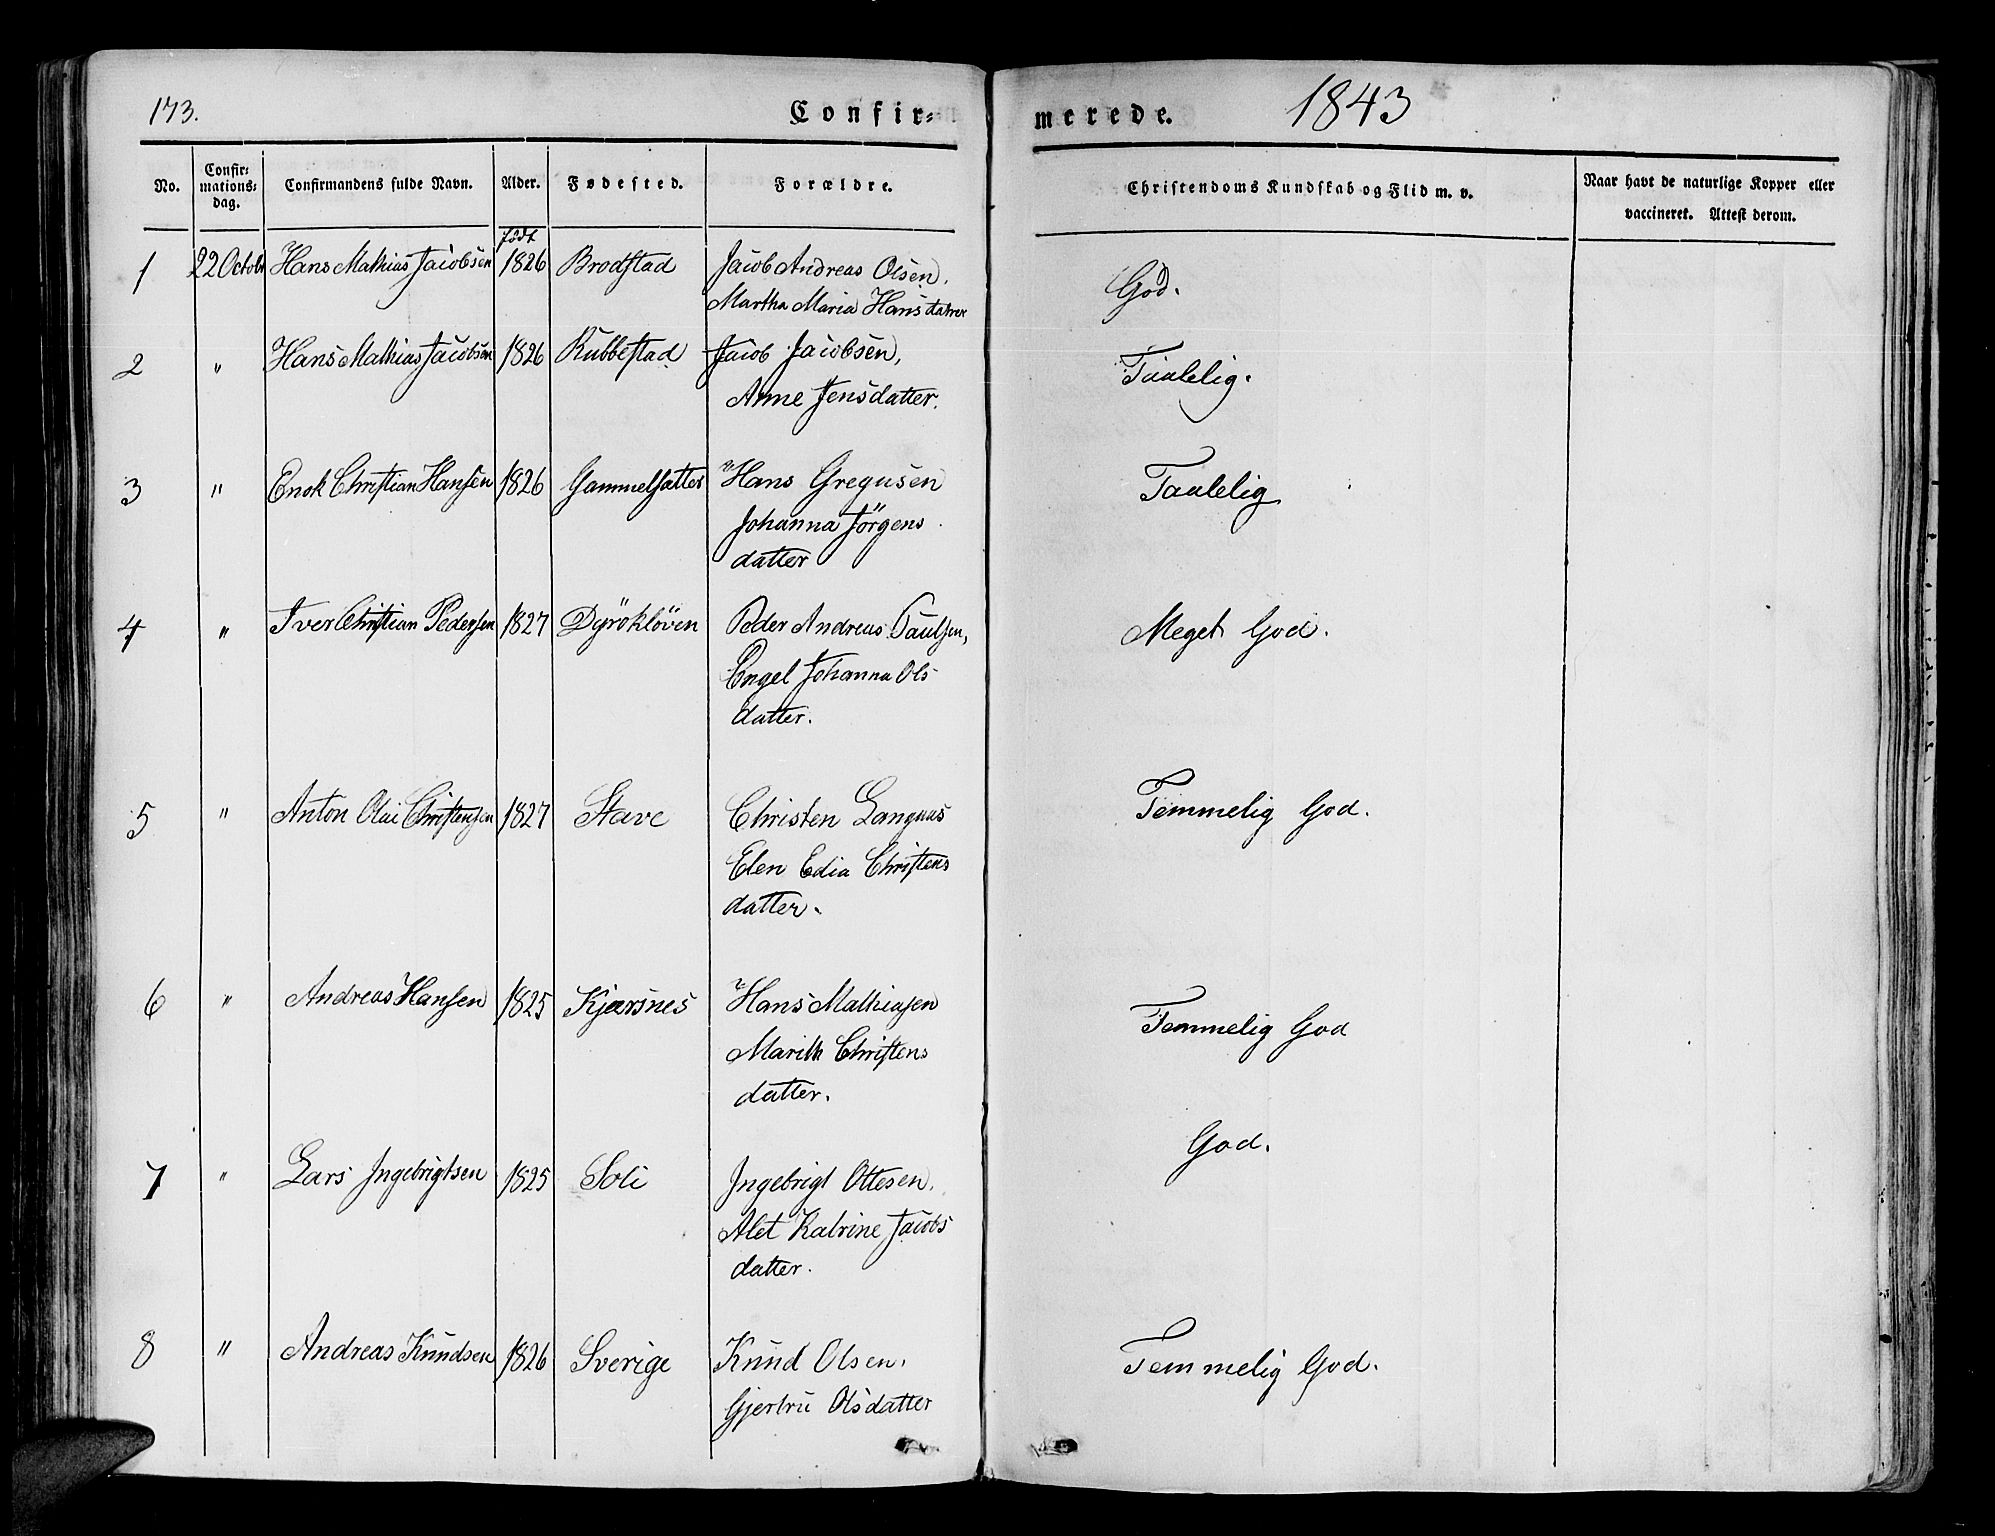 173.
Confir-
merede.
1843
No.
Confir-
mations-
dag.
Confirmandens fulde Navn.
Alder.
Fødested.
Forældre.
Christendoms Kundskab og Flid m. v.
Naar havt de naturlige Kopper eller
vaccineret. Attest derom.
født
1 22 Octobr Hans Mathias Jacobsen 1826 Brodstad Jacob Andreas Olsen, God.
Martha Maria Hansdatter
2 " Hans Mathias Jacobsen 1826 Kubbestad Jacob Jacobsen, Taalelig.
Anne Jensdatter.
3 " Enok Christian Hansen 1826 Gammelsæter Hans Gregusen Taalelig
Johanna Jörgens
datter
4 " Iver Christian Pedersen 1827 Dyröklöven Peder Andreas Paulsen, Meget God.
Engel Johanna Ols
datter.
5 " Anton Olai Christensen 1827 Stave Christen Langaas Temmelig God.
Elen Edia Christens
datter.
6 " Andreas Hansen 1825 Kjærsnes Hans Mathiasen Temmelig God
Marith Christens
datter.
7 " Lars Ingebrigtsen 1825 Soli Ingebrigt Ottesen. God.
Alet Katrine Jacobs
datter.
8 " Andreas Knudsen 1826 Sverige Knud Olsen. Temmelig God.
Gjertru Olsdatter